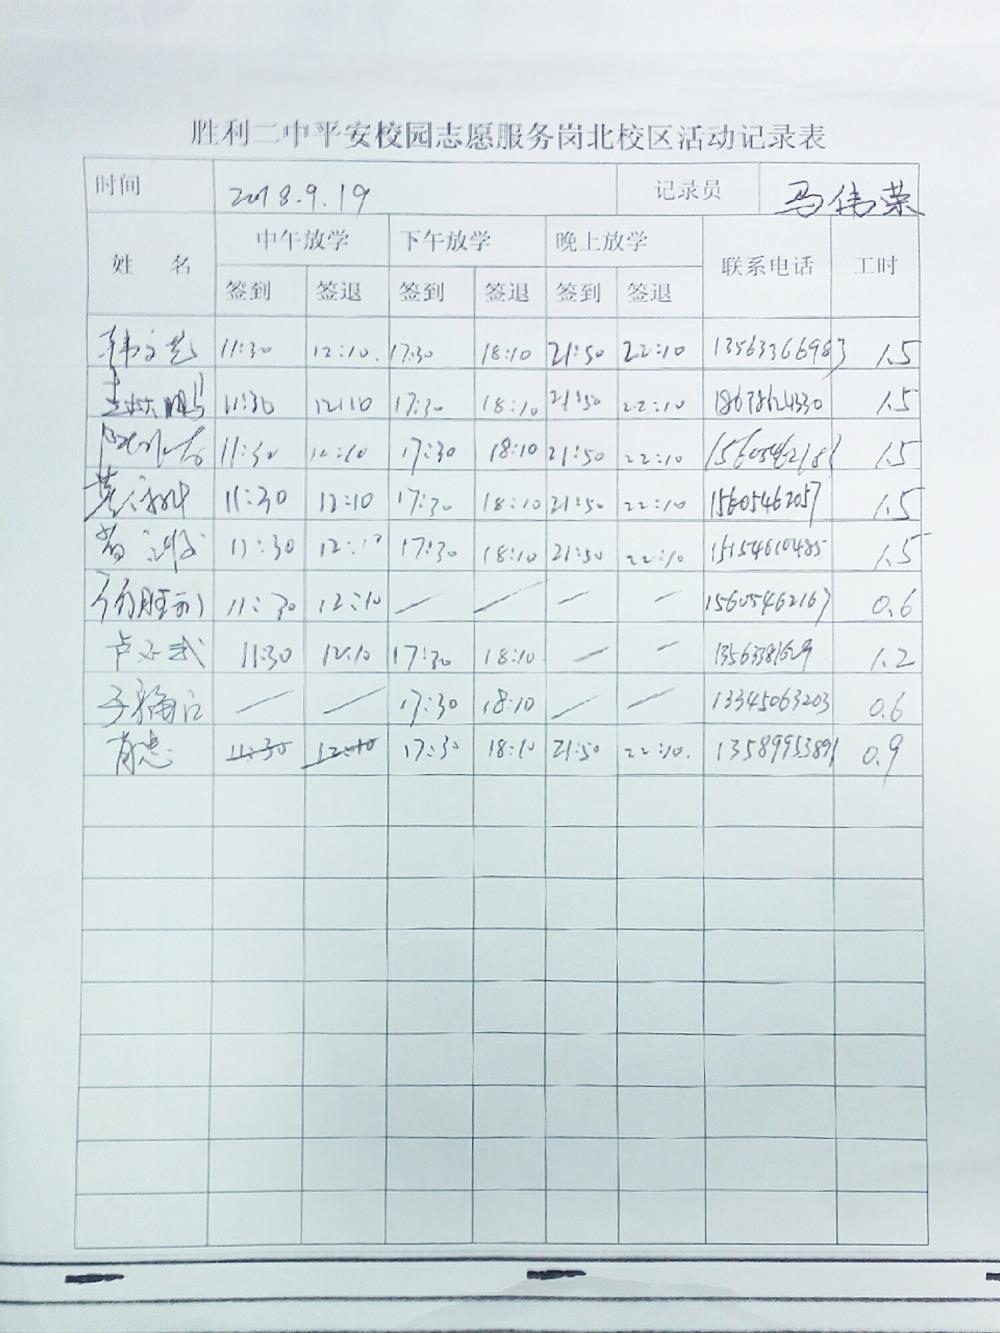 胜利二中平安校园志愿服务岗北校区活动记录表
时间 2018.9.19 记录员 马伟荣
姓 名 中午放学 下午放学 晚上放学 联系电话 工时
签到 签退 签到 签退 签到 签退
11:30 12:10 17:30 18:10 21:50 22:10 13563366983 1.5
11:30 12:10 17:30 18:10 21:50 22:10 18678624330 1.5
11:30 12:10 17:30 18:10 21:50 22:10 1.5
11:30 12:10 17:30 18:10 21:50 22:10 15605462057 1.5
11:30 17:30 18:10 21:50 22:10 15154610485 1.5
11:30 12:10 / / / / 15605462167 0.6
11:30 12:10 17:30 18:10 / / 1.2
/ / 17:30 18:10 / / 13345063203 0.6
11:30 12:10 17:30 18:10 21:50 22:10. 13589953891 0.9